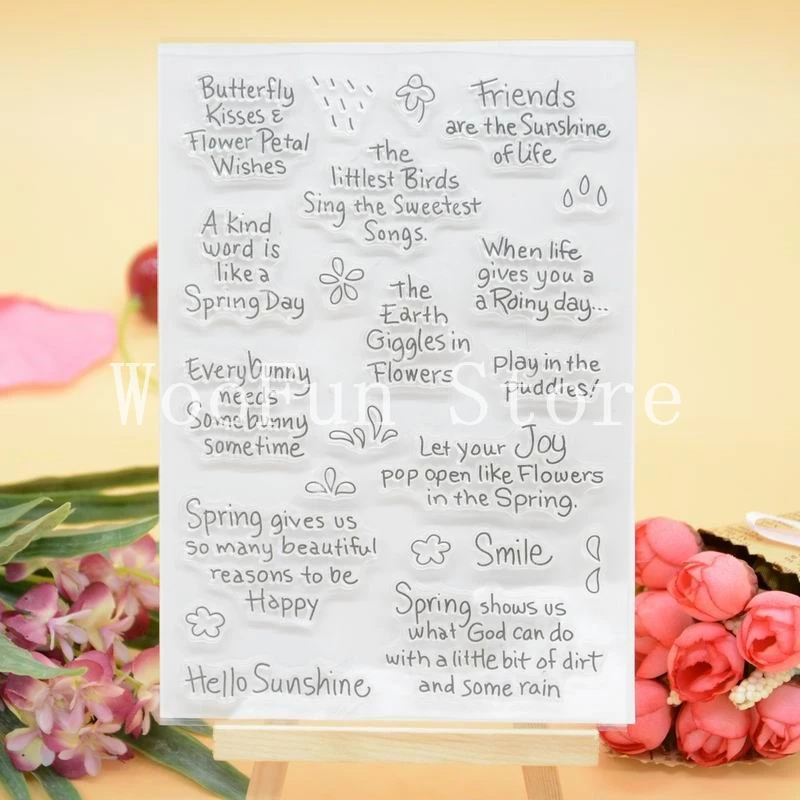 Butterfly
Kisses &
Flower Petal
Wishes
Friends
are the Sunshine
of life
the
littlest Birds
Sing the Sweetest
Songs.
A kind
word is
like a
Spring Day
When life
gives you a
a Rainy day...
the
Earth
Giggles in
Flowers
play in the
puddles!
Everybunny
needs
Somebunny
sometime
WooFun Store
Let your Joy
pop open like Flowers
in the Spring.
Spring gives us
so many beautiful
reasons to be
Happy
Smile
Spring shows us
what God can do
with a little bit of dirt
and some rain
Hello Sunshine